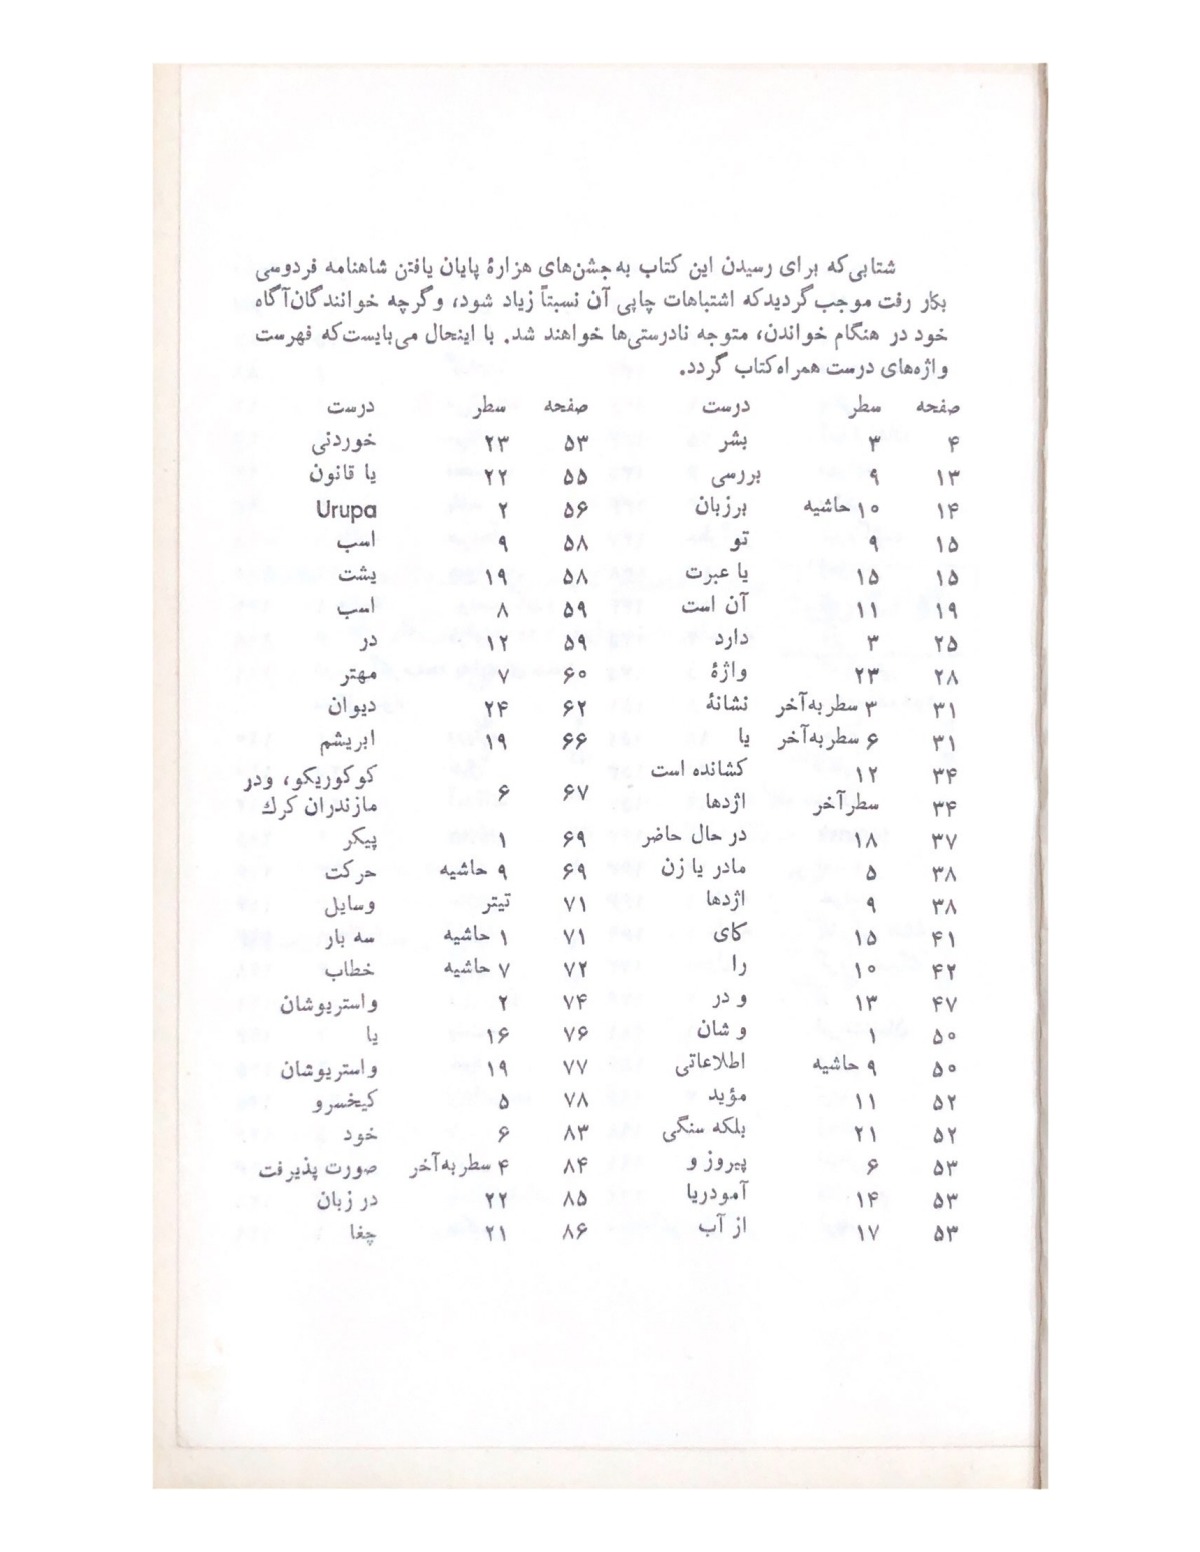 شتابی‌که برای رسیدن این کتاب به‌جشن‌های هزارهٔ پایان یافتن شاهنامه فردوسی
بکار رفت موجب‌گردیدکه اشتباهات چاپی آن نسبتاً زیاد شود، وگرچه خوانندگان‌آگاه
خود در هنگام خواندن، متوجه نادرستی‌ها خواهند شد. با اینحال می‌بایست‌که فهرست
واژه‌های درست همراه‌کتاب گردد.
صفحه سطر درست صفحه سطر درست
۴ ۳ بشر ۵۳ ۲۳ خوردنی
۱۳ ۹ بررسی ۵۵ ۲۲ یا قانون
۱۴ ۱۰ حاشیه برزبان ۵۶ ۲ Urupa
۱۵ ۹ تو ۵۸ ۹ اسب
۱۵ ۱۵ یا عبرت ۵۸ ۱۹ یشت
۱۹ ۱۱ آن است ۵۹ ۸ اسب
۲۵ ۳ دارد ۵۹ ۱۲ در
۲۸ ۲۳ واژهٔ ۶۰ ۷ مهتر
۳۱ ۳ سطربه‌آخر نشانهٔ ۶۲ ۲۴ دیوان
۳۱ ۶ سطربه‌آخر یا ۶۶ ۱۹ ابریشم
۳۴ ۱۲ کشانده است ۶۷ ۶ کوکوریکو، ودر
۳۴ سطرآخر اژدها مازندران کرك
۳۷ ۱۸ در حال حاضر ۶۹ ۱ پیکر
۳۸ ۵ مادر یا زن ۶۹ ۹ حاشیه حرکت
۳۸ ۹ اژدها ۷۱ تیتر وسایل
۴۱ ۱۵ کای ۷۱ ۱ حاشیه سه بار
۴۲ ۱۰ را ۷۲ ۷ حاشیه خطاب
۴۷ ۱۳ و در ۷۴ ۲ واستریوشان
۵۰ ۱ و شان ۷۶ ۱۶ یا
۵۰ ۹ حاشیه اطلاعاتی ۷۷ ۱۹ واستریوشان
۵۲ ۱۱ مؤید ۷۸ ۵ کیخسرو
۵۲ ۲۱ بلکه سنگی ۸۳ ۶ خود
۵۳ ۶ پیروز و ۸۴ ۴ سطربه‌آخر صورت پذیرفت
۵۳ ۱۴ آمودریا ۸۵ ۲۲ در زبان
۵۳ ۱۷ از آب ۸۶ ۲۱ چغا